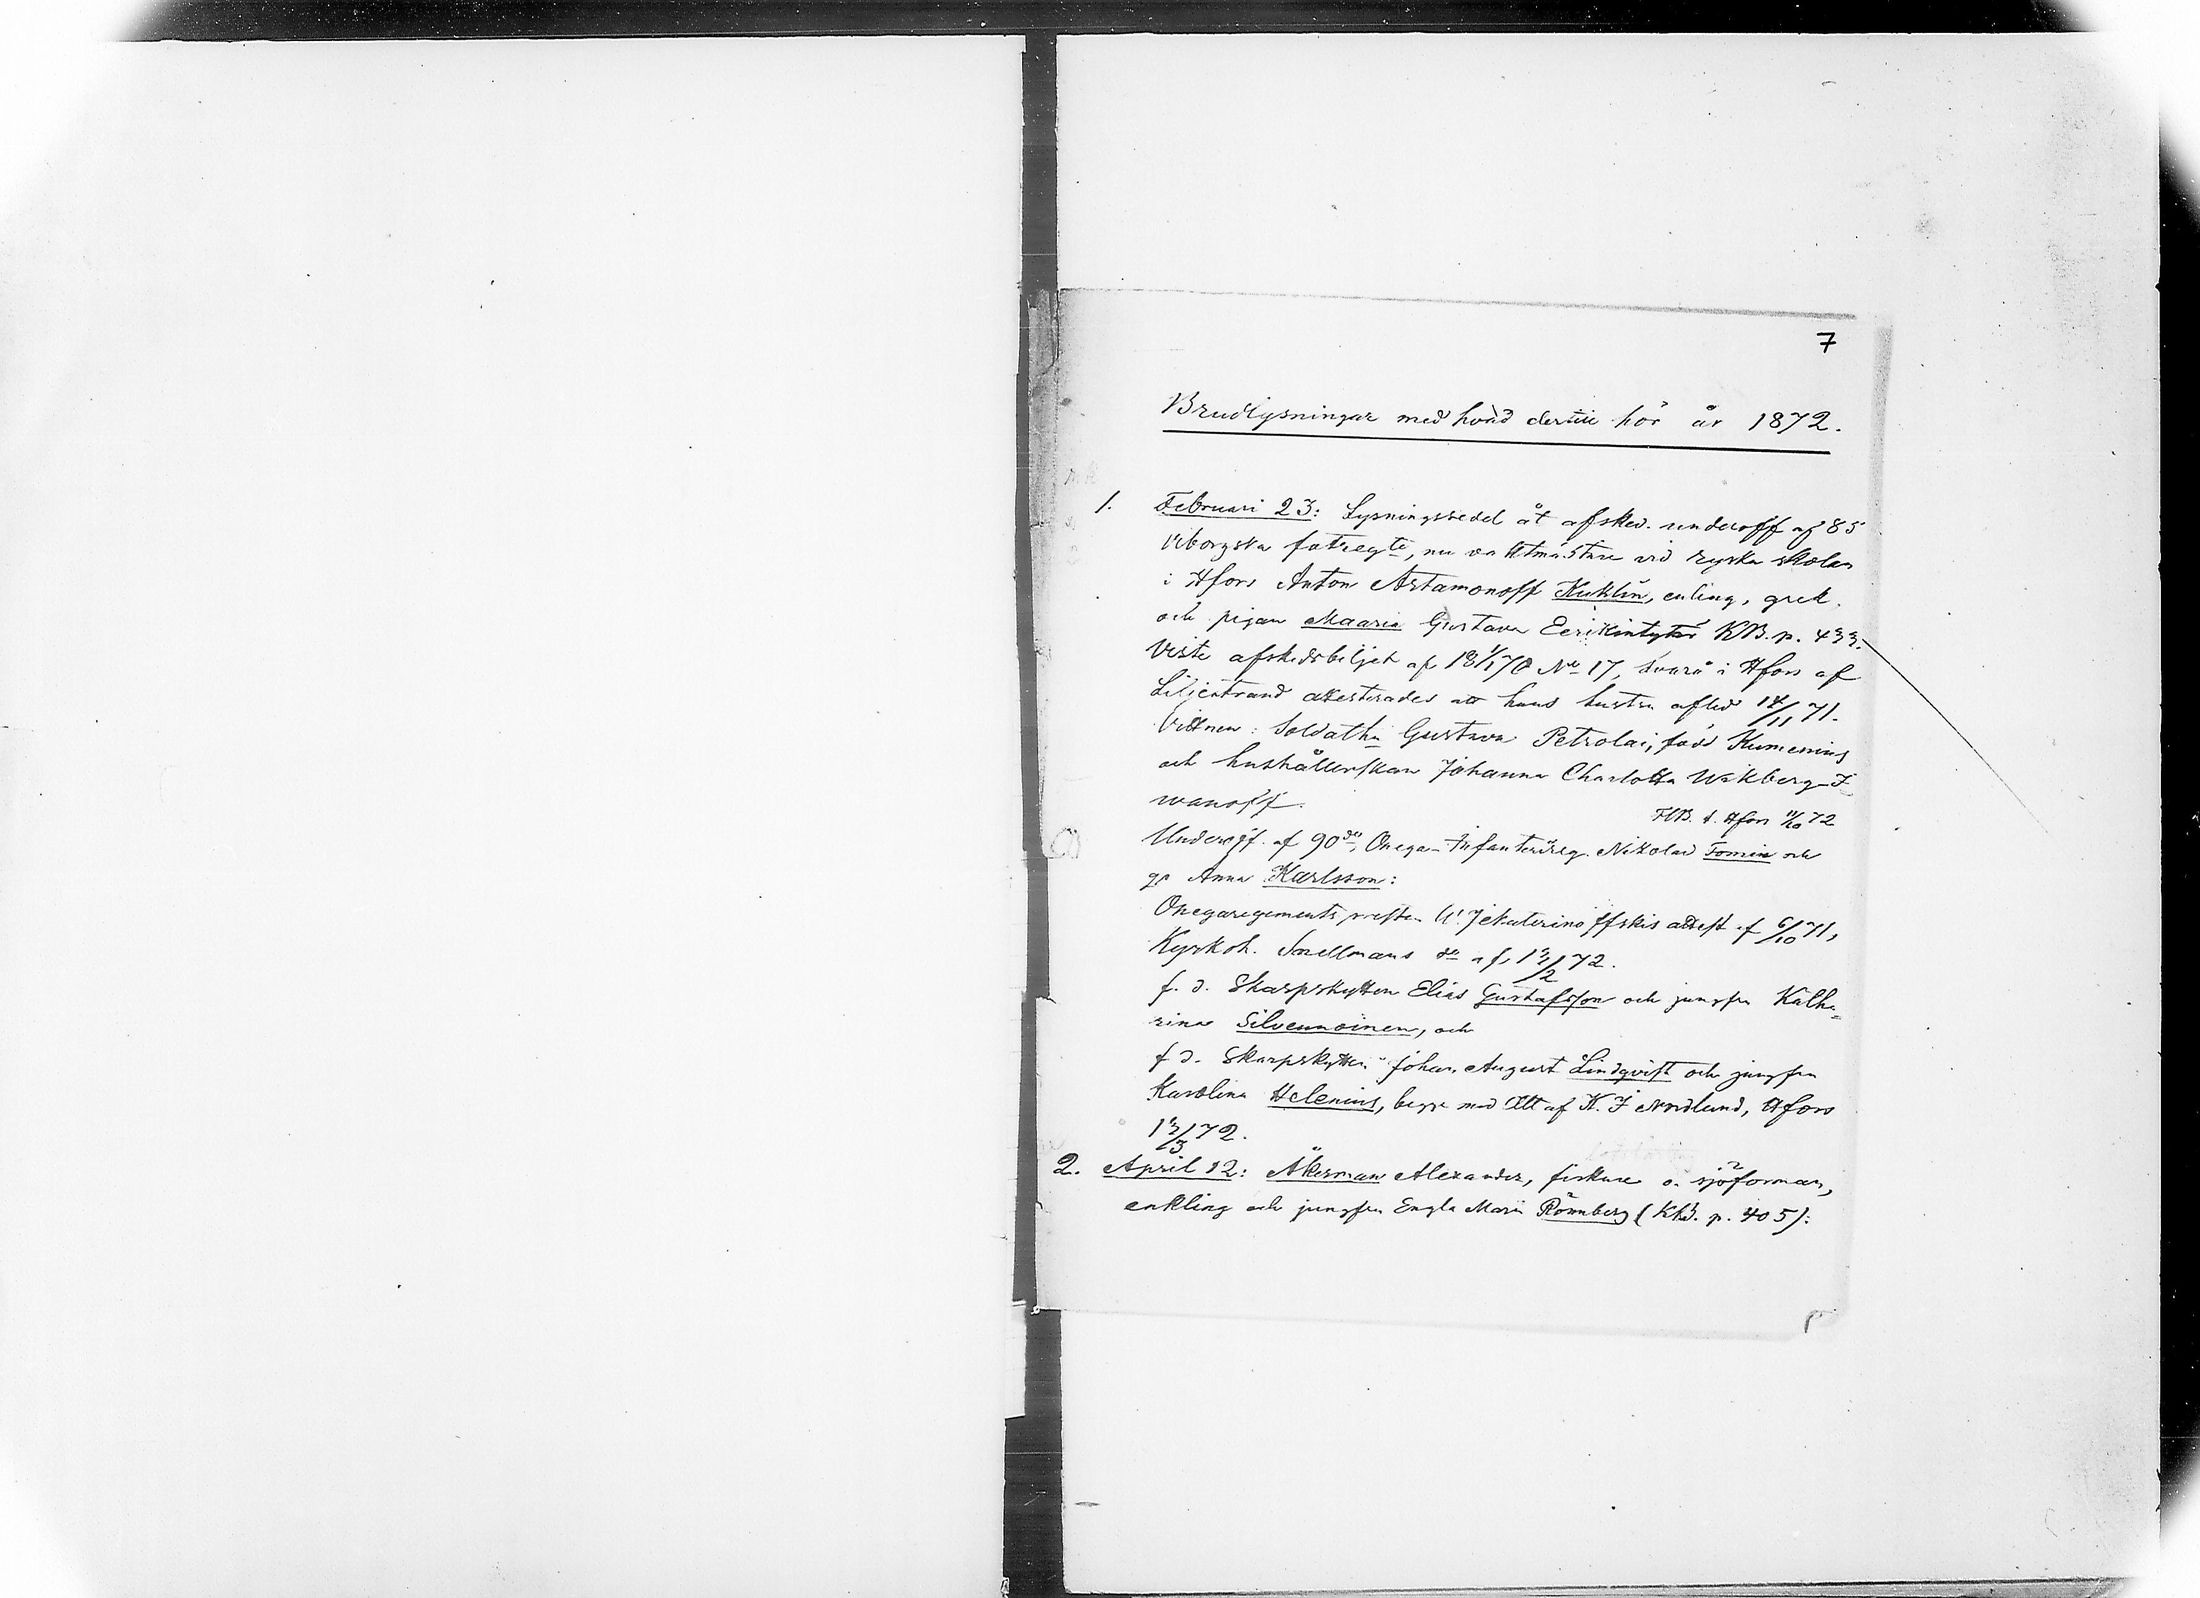 7
Brudlysningar med hvad dertill hör år 1872.
1. Februari 23: Lysningssedel åt afsked. underoff af 85
Viborgska fotregte, nu vaktmästare vid ryska skolan
i Hfors Anton Artamonoff Kuklin, enling, grek.
och pigan Maaria Gustava Eerikintytär KB. p. 433.
Viste afskedsbiljet af 18/1 70 No 17, i Hfors af
Liljestrand attesterades att hans hustru afled 14/11 71.
Vittnen: Soldath. Gustava Petrolai, född Kumenius
och hushållerskan Johanna Charlotta Wikberg-I-
wanoff.
FlB. t. Hfors 11/10 72
Underoff. af 90de Onega-Infanterireg. Nikolai Tomin och
Anna Karlsson:
Onegaregements presten W. Jekaterinoffskis attest af 6/10 71,
Kyrkoh. Snellmans do af 13/2 72.
f. d. Skarpskytten Elias Gustafsson och jungfru Katha-
rina Silvennoinen, och
f. d. Skarpskytten Johan August Lindqvist och jungfru
Karolina Helenius, begge med Att af K. J Nordlund, Hfors
13/3 72.
2. April 12: Åkerman Alexander, fiskare o. sjöforman,
enkling och jungfru Engla Maria Rönnberg (KB. p. 405):